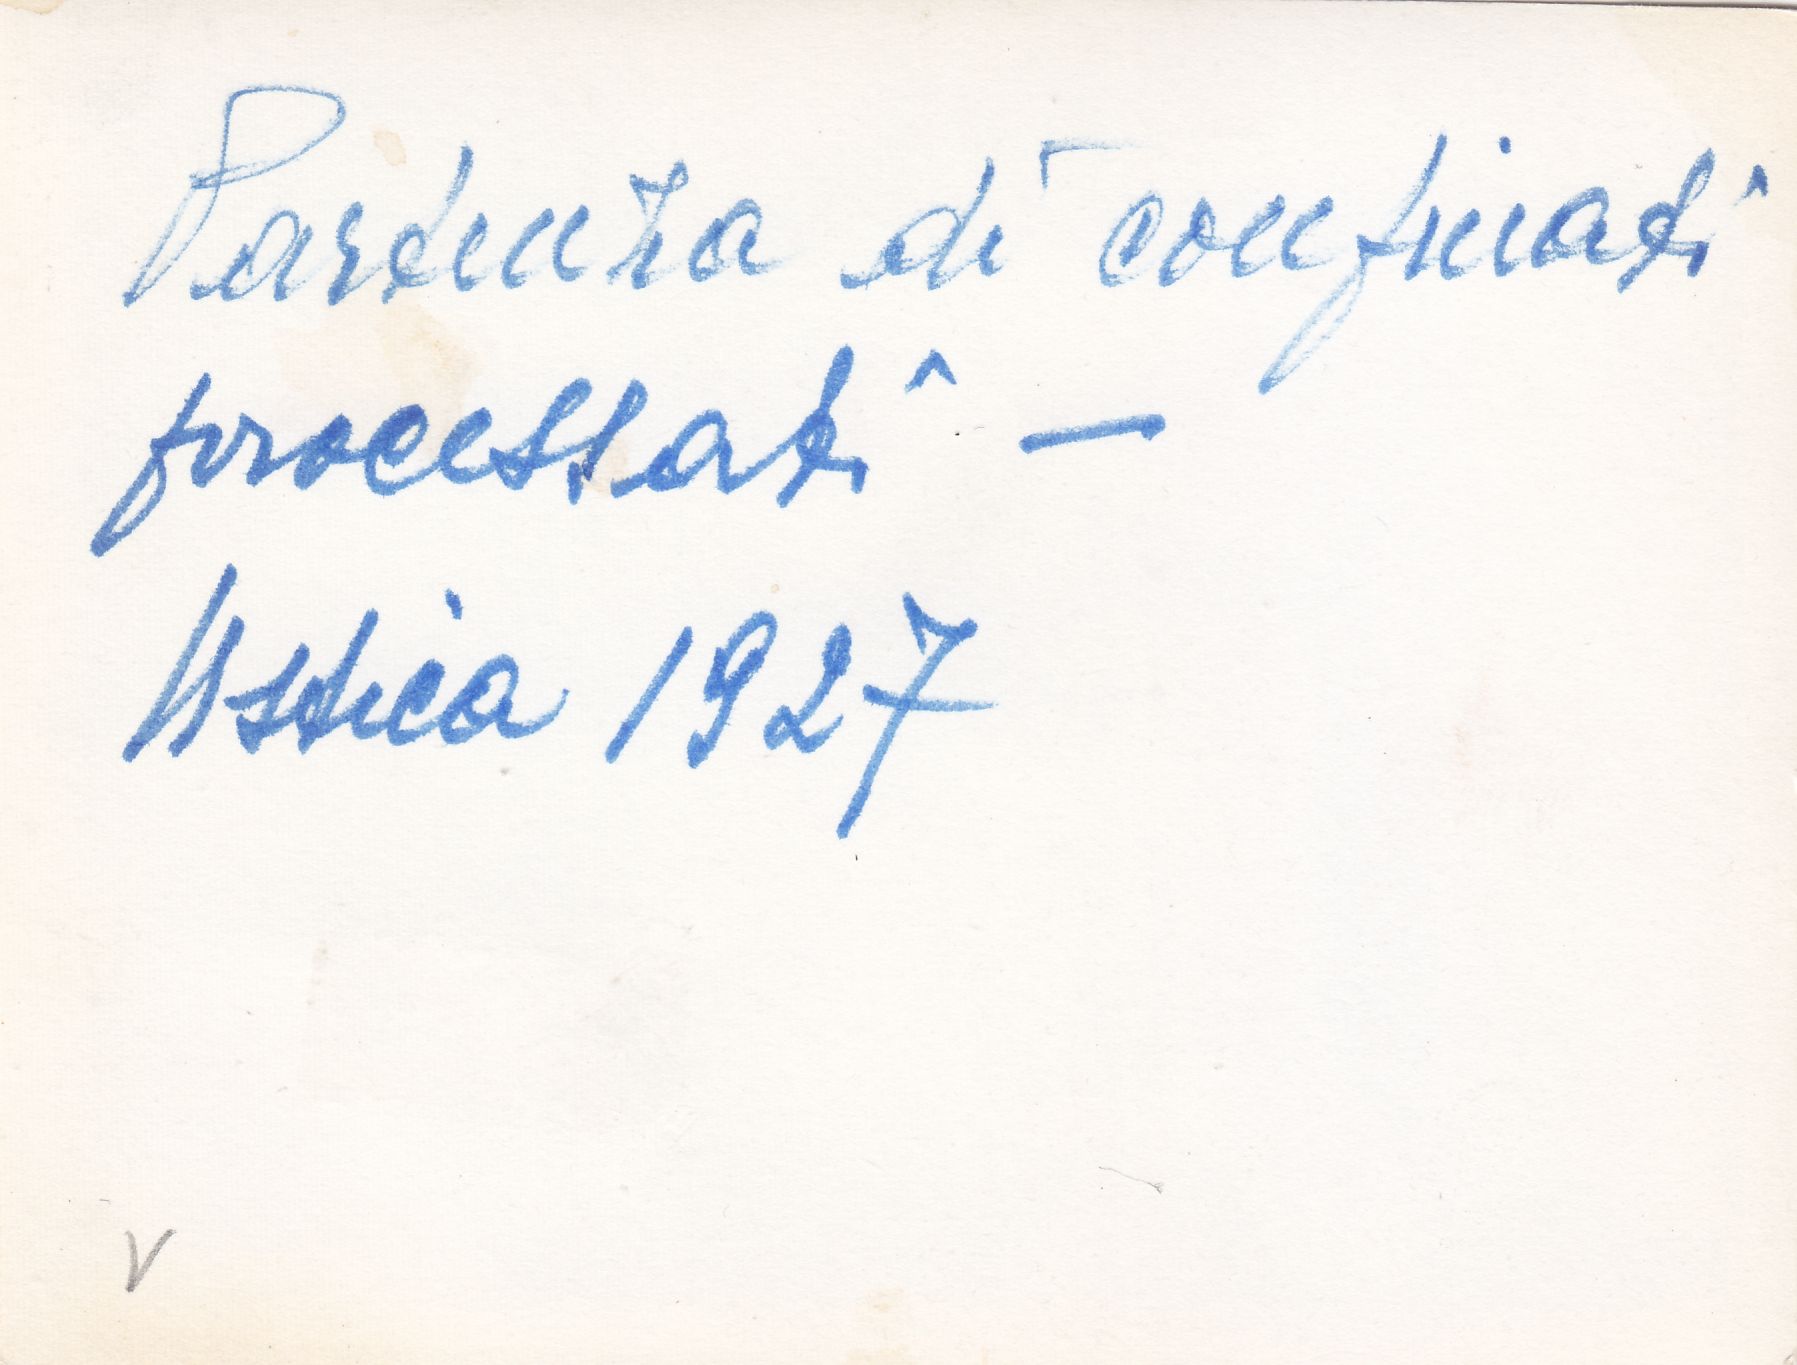 Partenza di confinati
processati —
Ustica 1927
V